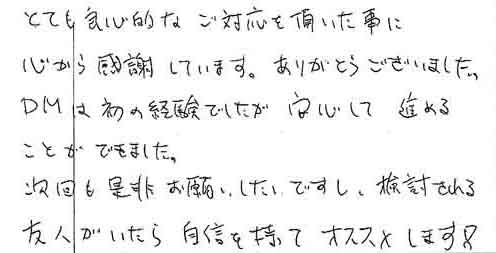 とても良心的な ご対応を頂いた事に
心から感謝しています。ありがとうございました。
DMは初の経験でしたが 安心して 進める
ことが できました。
次回も是非お願いしたいですし、検討される
友人がいたら 自信を持って オススメします!